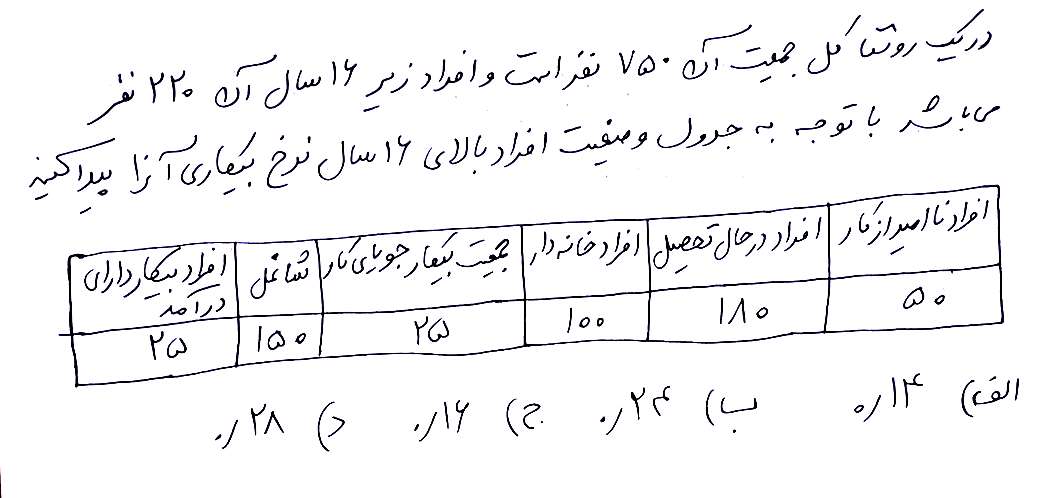 در یک روستا کل جمعیت آن ۷۵۰ نفر است و افراد زیر ۱۶ سال آن ۲۲۰ نفر
می باشد با توجه به جدول وضعیت افراد بالای ۱۶ سال نرخ بیکاری آنرا پیدا کنید
افراد ناامید از کار افراد در حال تحصیل افراد خانه دار جمعیت بیکار جویای کار شاغل افراد بیکار دارای درآمد
۵۰ ۱۸۰ ۱۰۰ ۲۵ ۱۵۰ ۲۵
الف) ۰٫۱۴ ب) ۰٫۲۴ ج) ۰٫۱۶ د) ۰٫۲۸